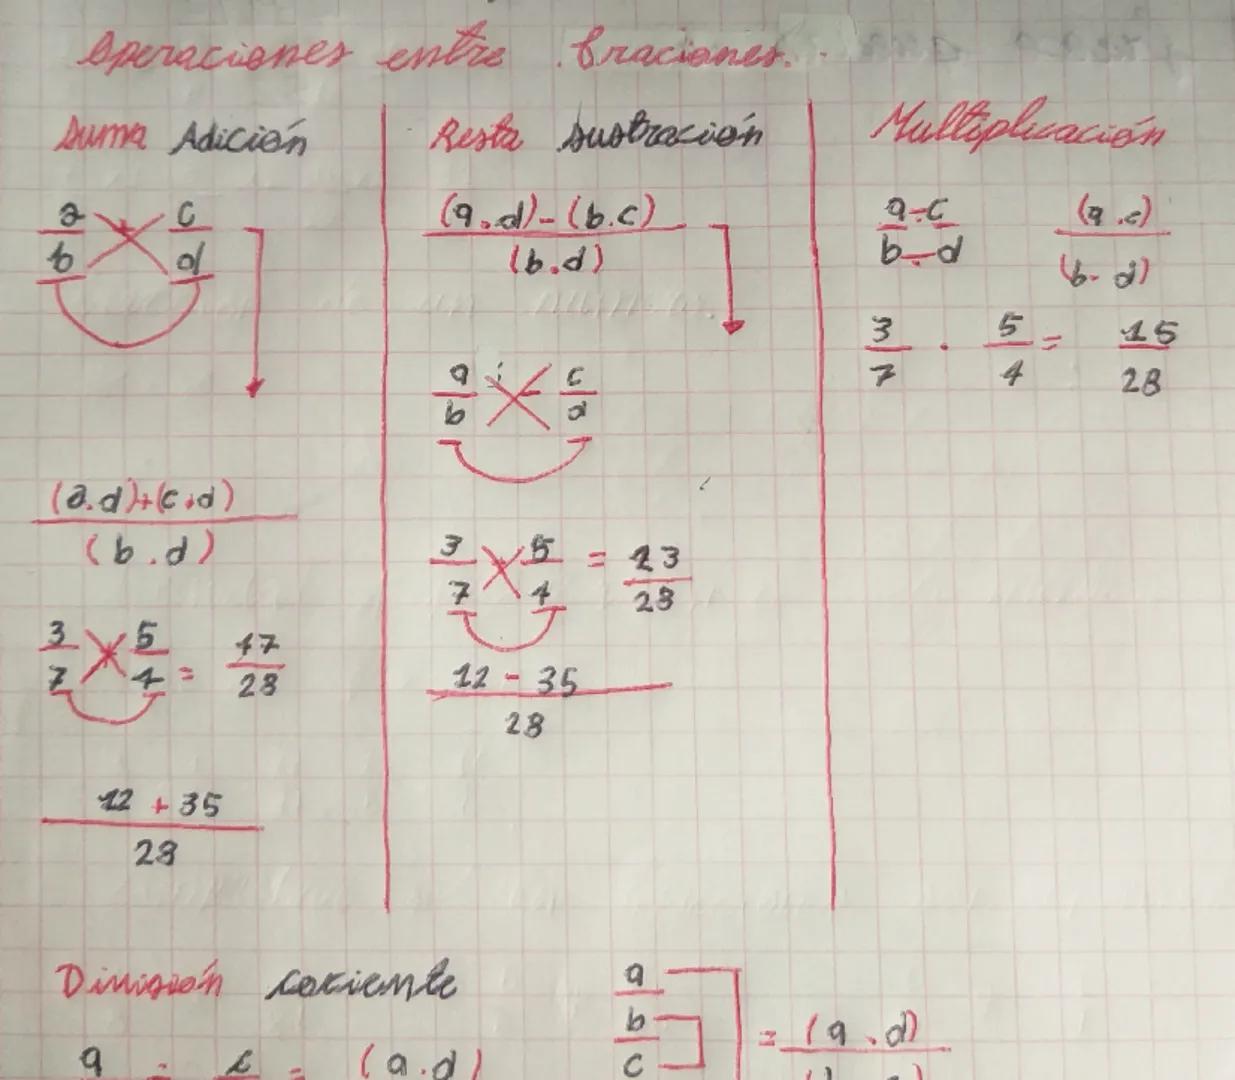 Operaciones entre fraciones.
Suma Adición
a/b c/d
(a.d)+(c.d)
(b.d)
3/7 5/4 = 47/28
12 + 35
28
Resta Sustración
(a.d)-(b.c)
(b.d)
a/b - c/d
3/7 5/4 = 23/28
12 - 35
28
Multiplicación
a.c (a.c)
b.d (b.d)
3/7 . 5/4 = 15/28
División cociente
a : c = (a.d)
a
b
c
= (a.d)